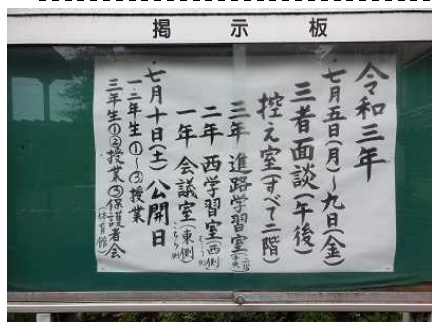 掲示板
令和三年
・七月五日(月)～九日(金)
三者面談(午後)
控え室(すべて二階)
三年 進路学習室
二年 西学習室(西側)
一年 会議室(東側)
・七月十日(土)公開日
一・二年生①～③授業
三年生①②授業③保護者会
(体育館)